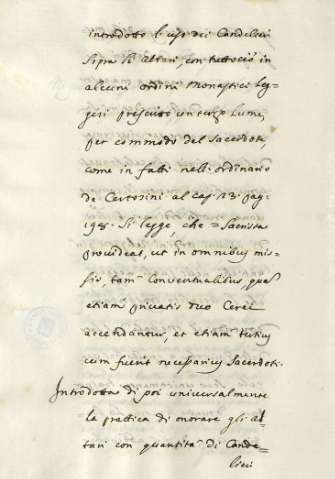 introdotto l'uso dei Candelieri
sopra li Altari, con tuttociò in
alcuni ordini Monastici leg=
gesi prescritto un terzo lume,
per commodo del Sacerdote,
come in fatti nell'ordinario
de Certosini al cap. 23. pag.
198. si legge, che = Sacrista
provideat, ut in omnibus mis=
sis, tam Conventualibus, quam
etiam privatis duo Cerei
accendantur, et etiam tertius
cum fuerit necessarius Sacerdoti.
Introdotta di poi universalmente
la prattica di onorare gli Al=
tari con quantità di Cande=
lieri